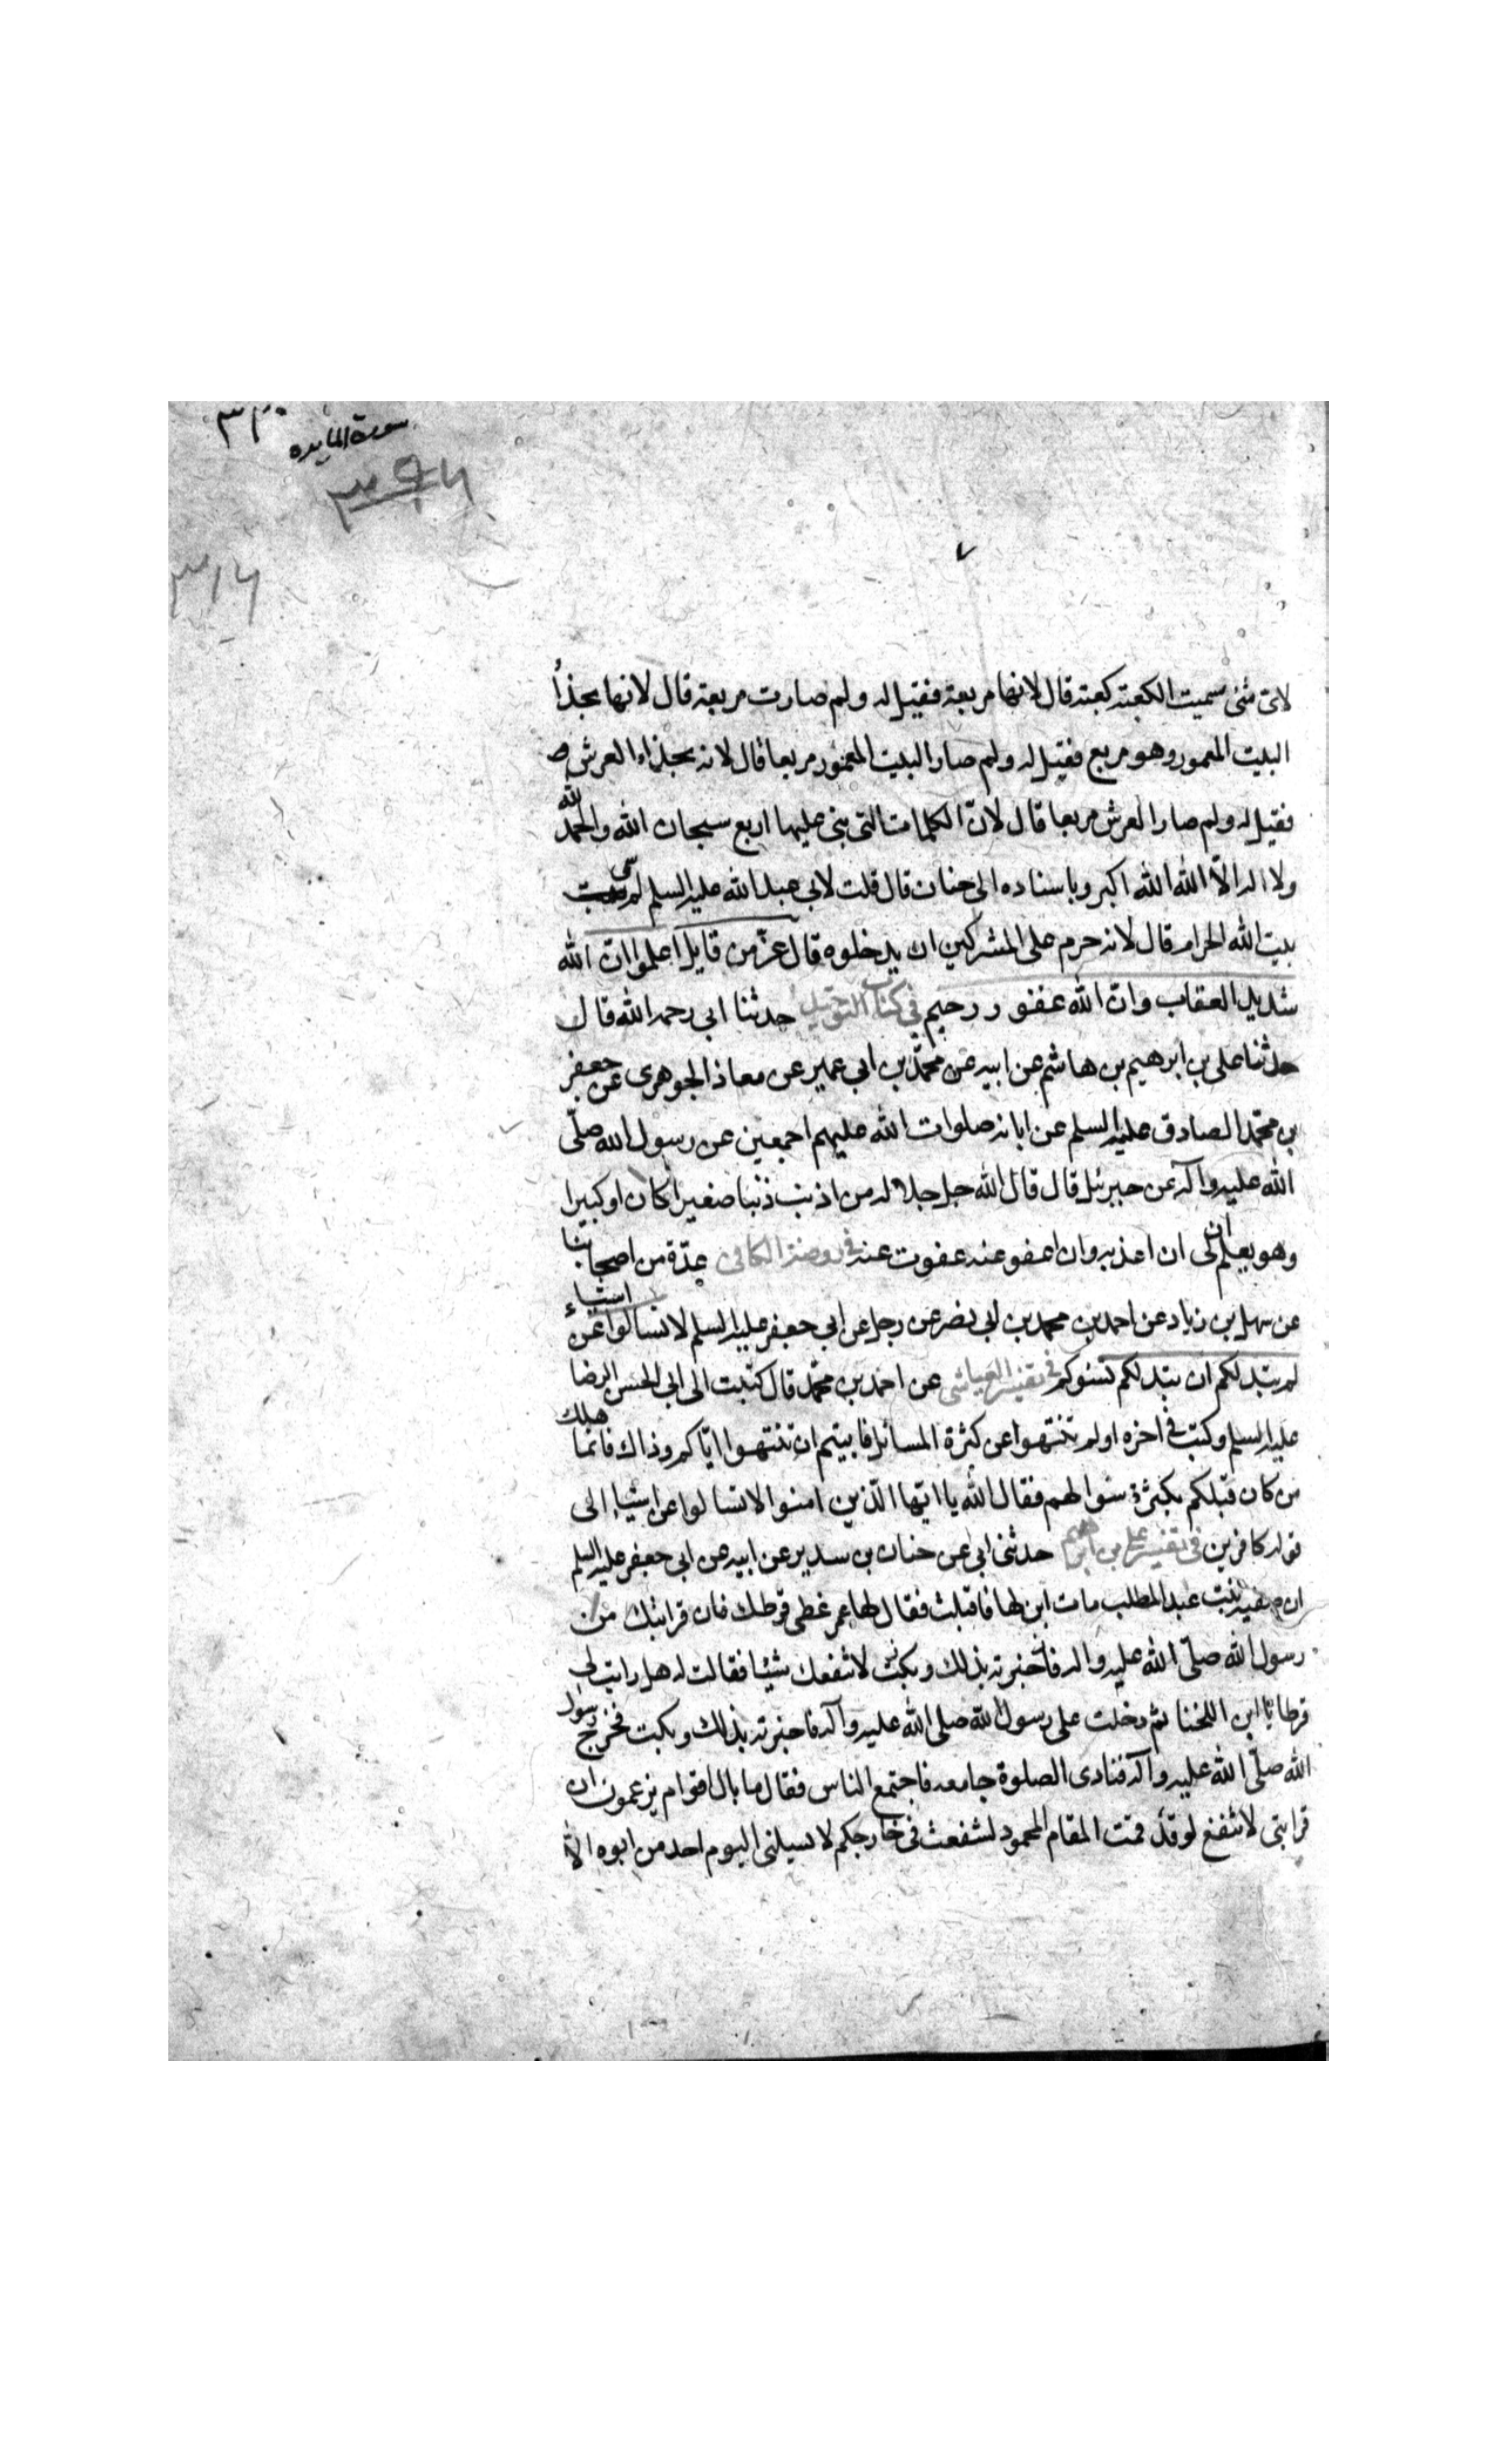 ٣٢٠
سورة المايده
٣٩٦
٣١٦
لاى شئ سميت الكعبة كعبة قال لانها مربعة فقيل له ولم صارت مربعة قال لانها بحذا
البيت المعمور وهو مربع فقيل له ولم صار البيت المعمور مربعا قال لانه بحذاء العرش و
فقيل له ولم صار العرش مربعا قال لانّ الكلمات التى بنى عليها اربع سبحان الله والحمد لله
ولا اله الاّ الله الله اكبر وباسناده الى حنان قال قلت لابي عبد الله عليه السلم لم سمى
بيت الله الحرام قال لانه حرم على المشركين ان يدخلوه قال عزّ من قايل اعلموا انّ الله
شديد العقاب وانّ الله غفور رحيم فى كتاب التوحيد حدثنا ابى رحمه الله قال
حدثنا على بن ابرهيم بن هاشم عن ابيه عن محمّد بن ابى عمير عن معاذ الجوهرى عن جعفر
بن محمّد الصادق عليه السلم عن ابائه صلوات الله عليهم اجمعين عن رسول الله صلّى
الله عليه وآله عن جبرئل قال قال الله جل جلاله من اذنب ذنبا صغيرا كان او كبيرا
وهو يعلم ان لى ان اعذبه وان اعفو عنه عفوت عنه فى روضة الكافى عدّة من اصحابنا
عن سهل بن زياد عن احمد بن محمد بن ابى نصر عن رجل عن ابي جعفر عليه السلم لا تسالوا عن اشياء
لم تبد لكم ان تبد لكم تسوكم فى تفسير العياشى عن احمد بن محمّد قال كتبت الى ابى الحسن الرضا
عليه السلم وكتب فى اخره اولم تنتهوا عن كثرة المسائل فابيتم ان تنتهوا ايّاكم وذاك فانما هلك
من كان قبلكم بكثرة سئوالهم فقال الله يا ايّها الّذين امنوا لا تسالوا عن اشياء الى
قوله كافرين فى تفسير على بن ابرهيم حدثنى ابى عن حنان بن سدير عن ابيه عن ابى جعفر عليه السلم
ان صفية بنت عبد المطلب مات ابن لها فاقبلت فقال لها عمر غطى قرطك فان قرابتك من
رسول الله صلّى الله عليه واله لا تنفعك شيئا فقالت له هل رايت لى
قرطا يا ابن اللخنا ثم دخلت على رسول الله صلى الله عليه وآله فاخبرته بذلك وبكت فخرج رسول
الله صلّى الله عليه وآله فنادى الصلوة جامعه فاجتمع الناس فقال ما بال اقوام يزعمون ان
قرابتى لا تنفع لو قد قمت المقام المحمود لشفعت فى خارجكم لا يسيلنى اليوم احد من ابوه الاّ